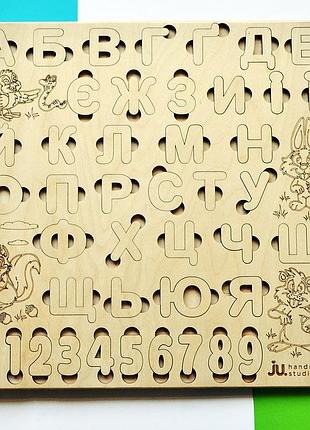 А Б В Г Ґ Д Е
Є Ж З И І Ї
Й К Л М Н
О П Р С Т У
Ф Х Ц Ч Ш
Щ Ь Ю Я
0123456789
JU. hand
studio